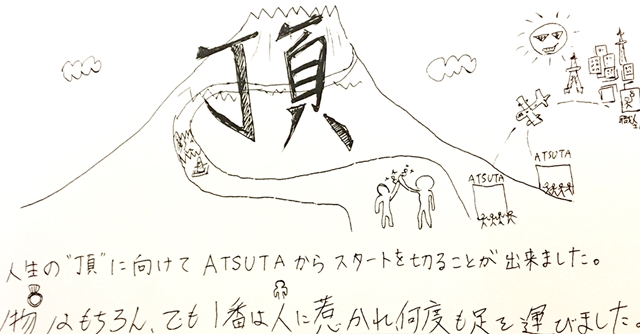 頂
ATSUTA
ATSUTA
人生の"頂"に向けて ATSUTAから スタートを切ることが 出来ました。
物はもちろん、でも1番は人に惹かれ何度も足を運びました。